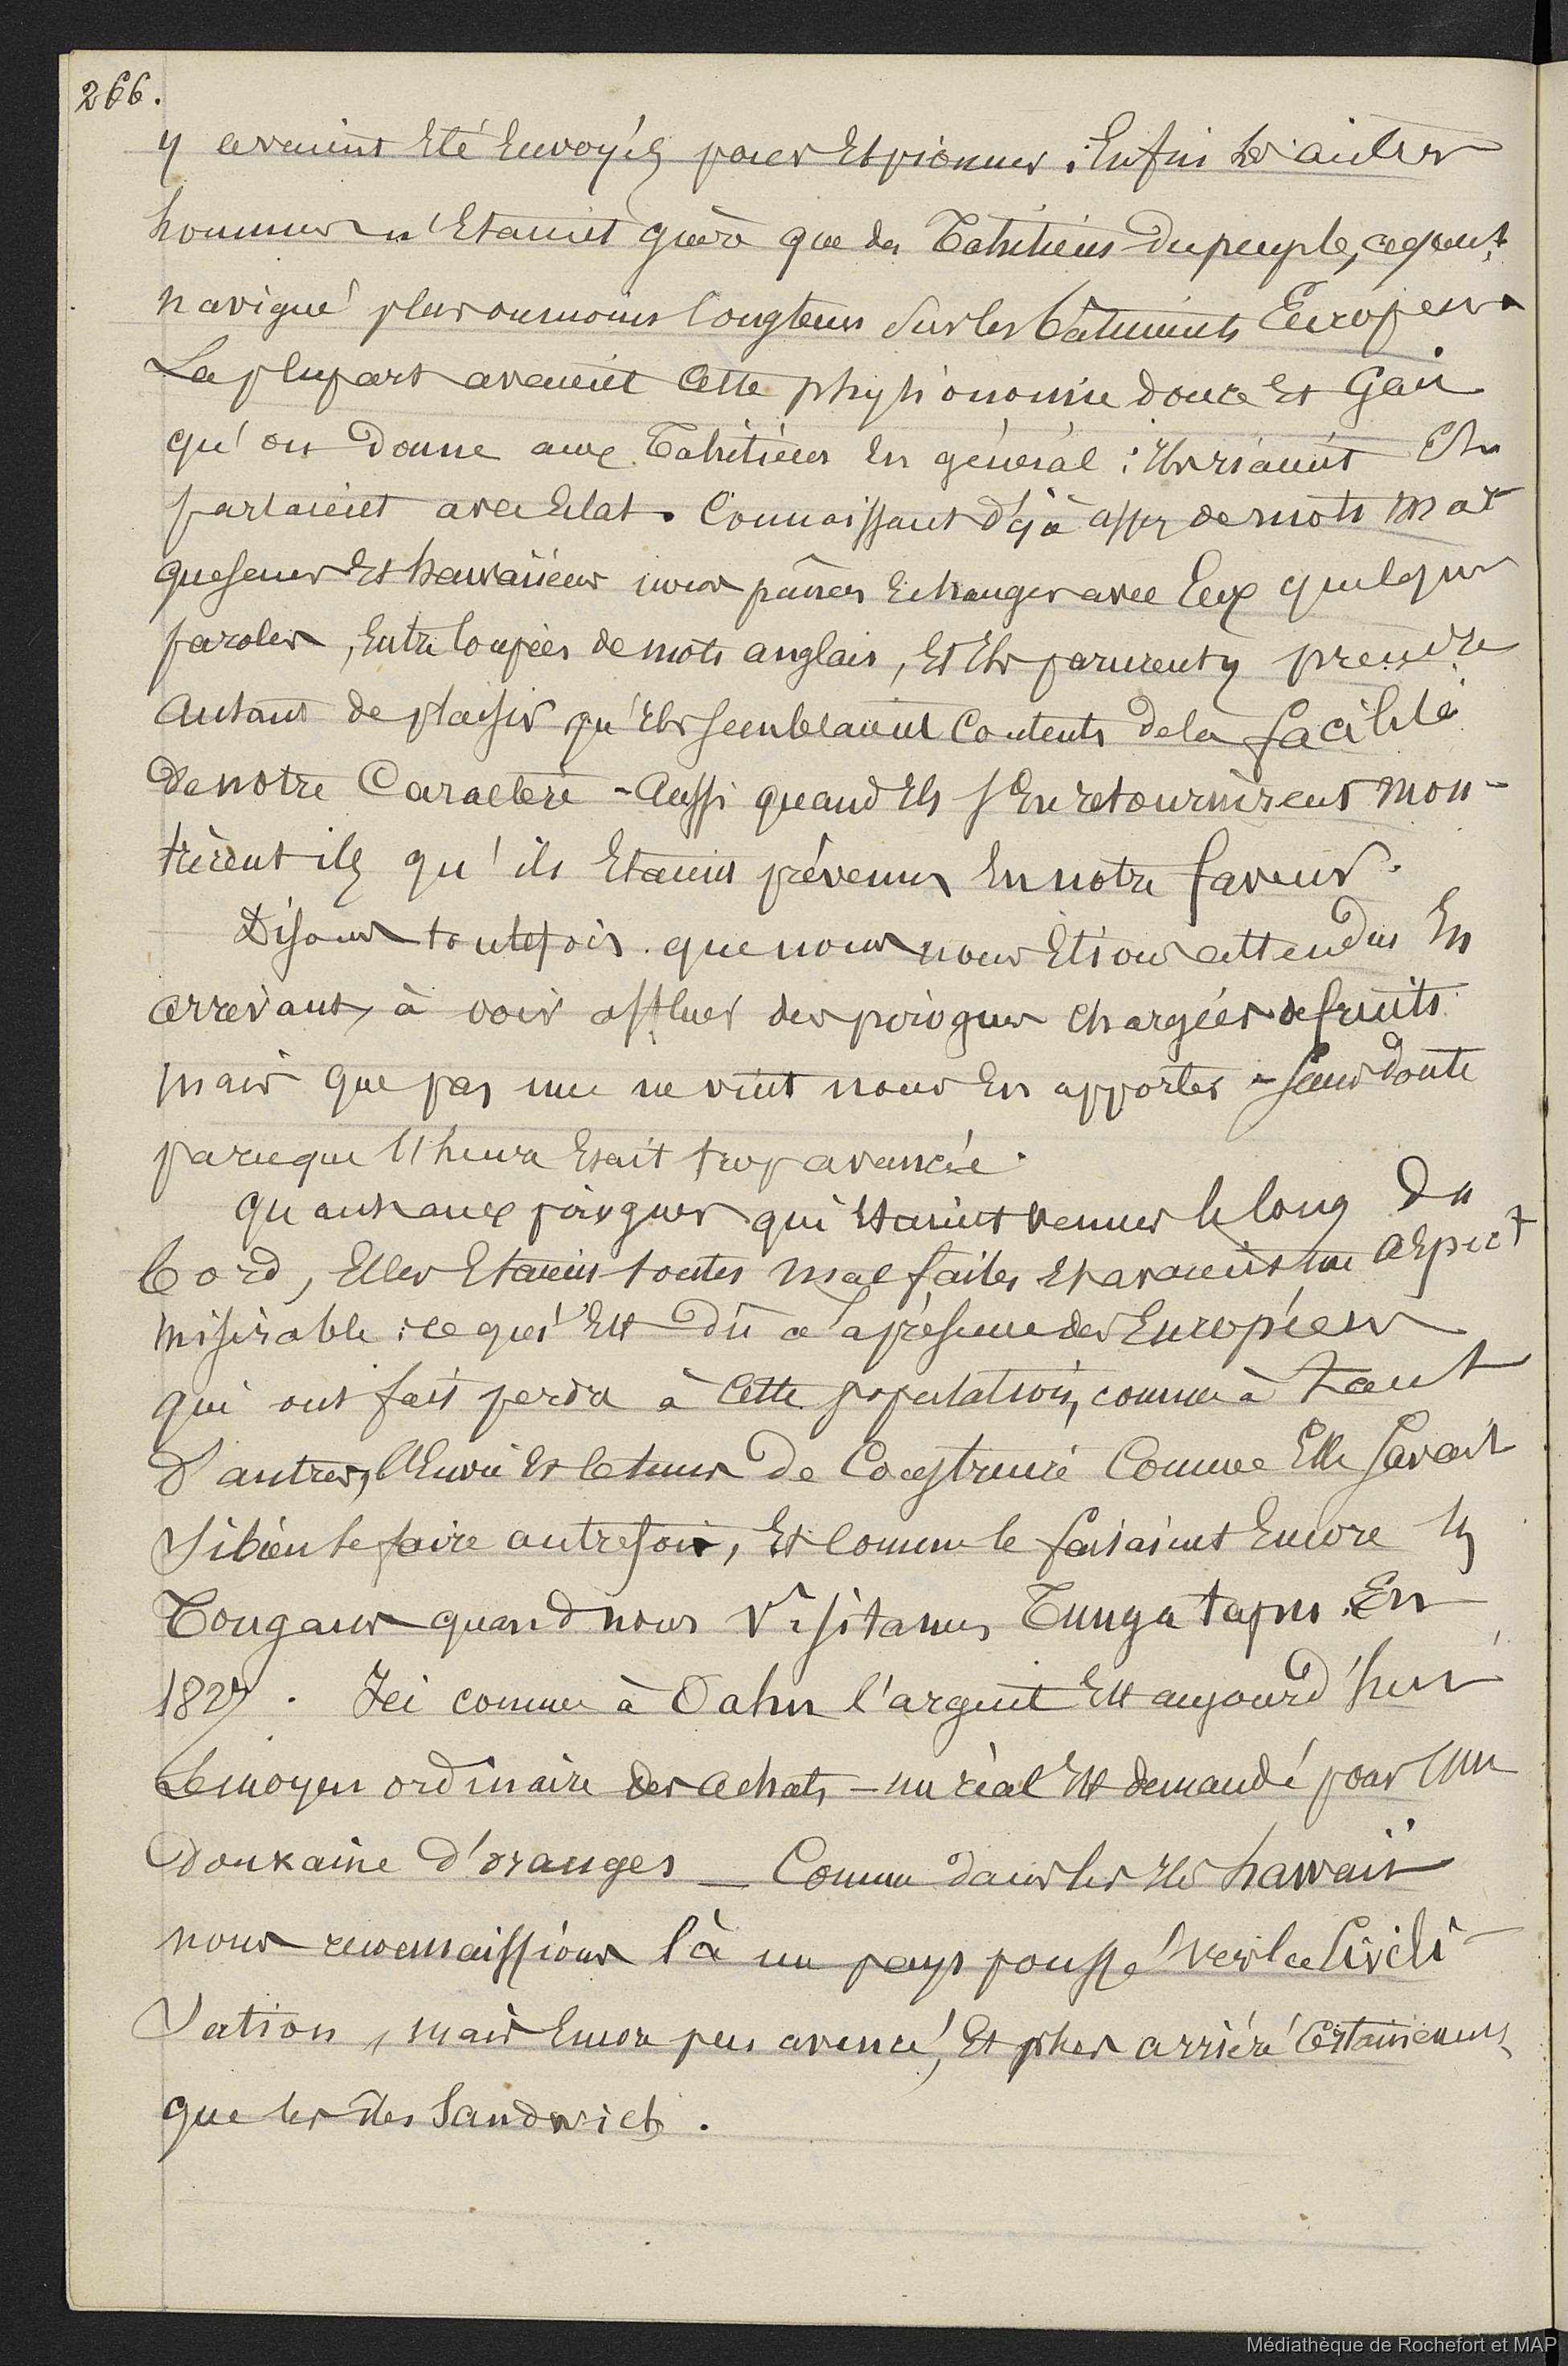 266.
y avaient Eté Envoyés pour Espionner. Enfin les autres
hommes n'Etaient guère que des Tahitiens du peuple, ayant
navigué plus ou moins longtems sur les bâtiments Européens
La plupart avaient cette physionomie douce Et Gaie
qu'on Donne aux Tahitiens En général : Ils riaient Et
parlaient avec Eclat. Connaissant déjà assez de mots Mar
quesans Et hawaiiens nous pûmes Echanger avec Eux quelques
paroles, Entrecoupées de mots anglais, Et Ils parurent y prendre
Autant de plaisir qu'Ils semblaient Contents de la facilité
De notre Caractère - Aussi quand Ils s'En retournèrent Mon-
trèrent ils qu'ils Etaient prévenus En notre faveur.
Disons toutefois que nous nous Etions attendus En
arrivant, à voir affluer des pirogues chargées de fruits
mais que pas une ne vint nous En apporter - Sans doute
parceque l'heure Etait trop avancée.
Quant aux pirogues qui Etaient venues le long Du
bord, Elles Etaient toutes mal faites Et avaient un aspect
misérable : ce qui Est Dû a la présence des Européens
qui ont fait perdre à Cette population, comme à tant
d'autres, l'Envie Et le tems De Construire Comme Elle Savait
Si bien le faire autrefois, Et Comme le faisaient Encore les
Tongans quand nous Visitames Tunga tapu. En
1827. Ici comme à Oahu l'argent Est aujourd'hui
Le moyen ordinaire des achats - un réal Est demandé pour Une
Douzaine d'oranges _ Comme dans les Iles hawaii
nous reconnaissions là un pays poussé vers la Civili-
Sation, mais Encore peu avancé, Et plus arriéré Certainement,
que les îles Sandwich.
Médiathèque de Rochefort et MAP